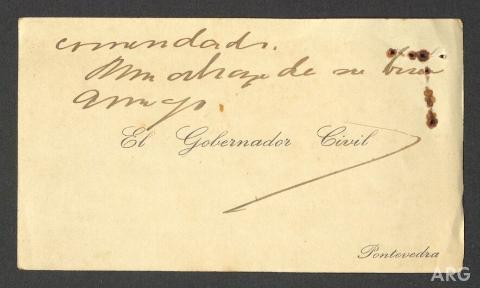 comendado.
Un abrazo de su buen
amigo.
El Gobernador Civil
Pontevedra
ARG